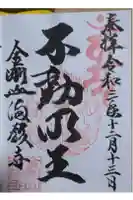 奉拝 令和三年十二月十三日
不動明王
金剛山 最福寺